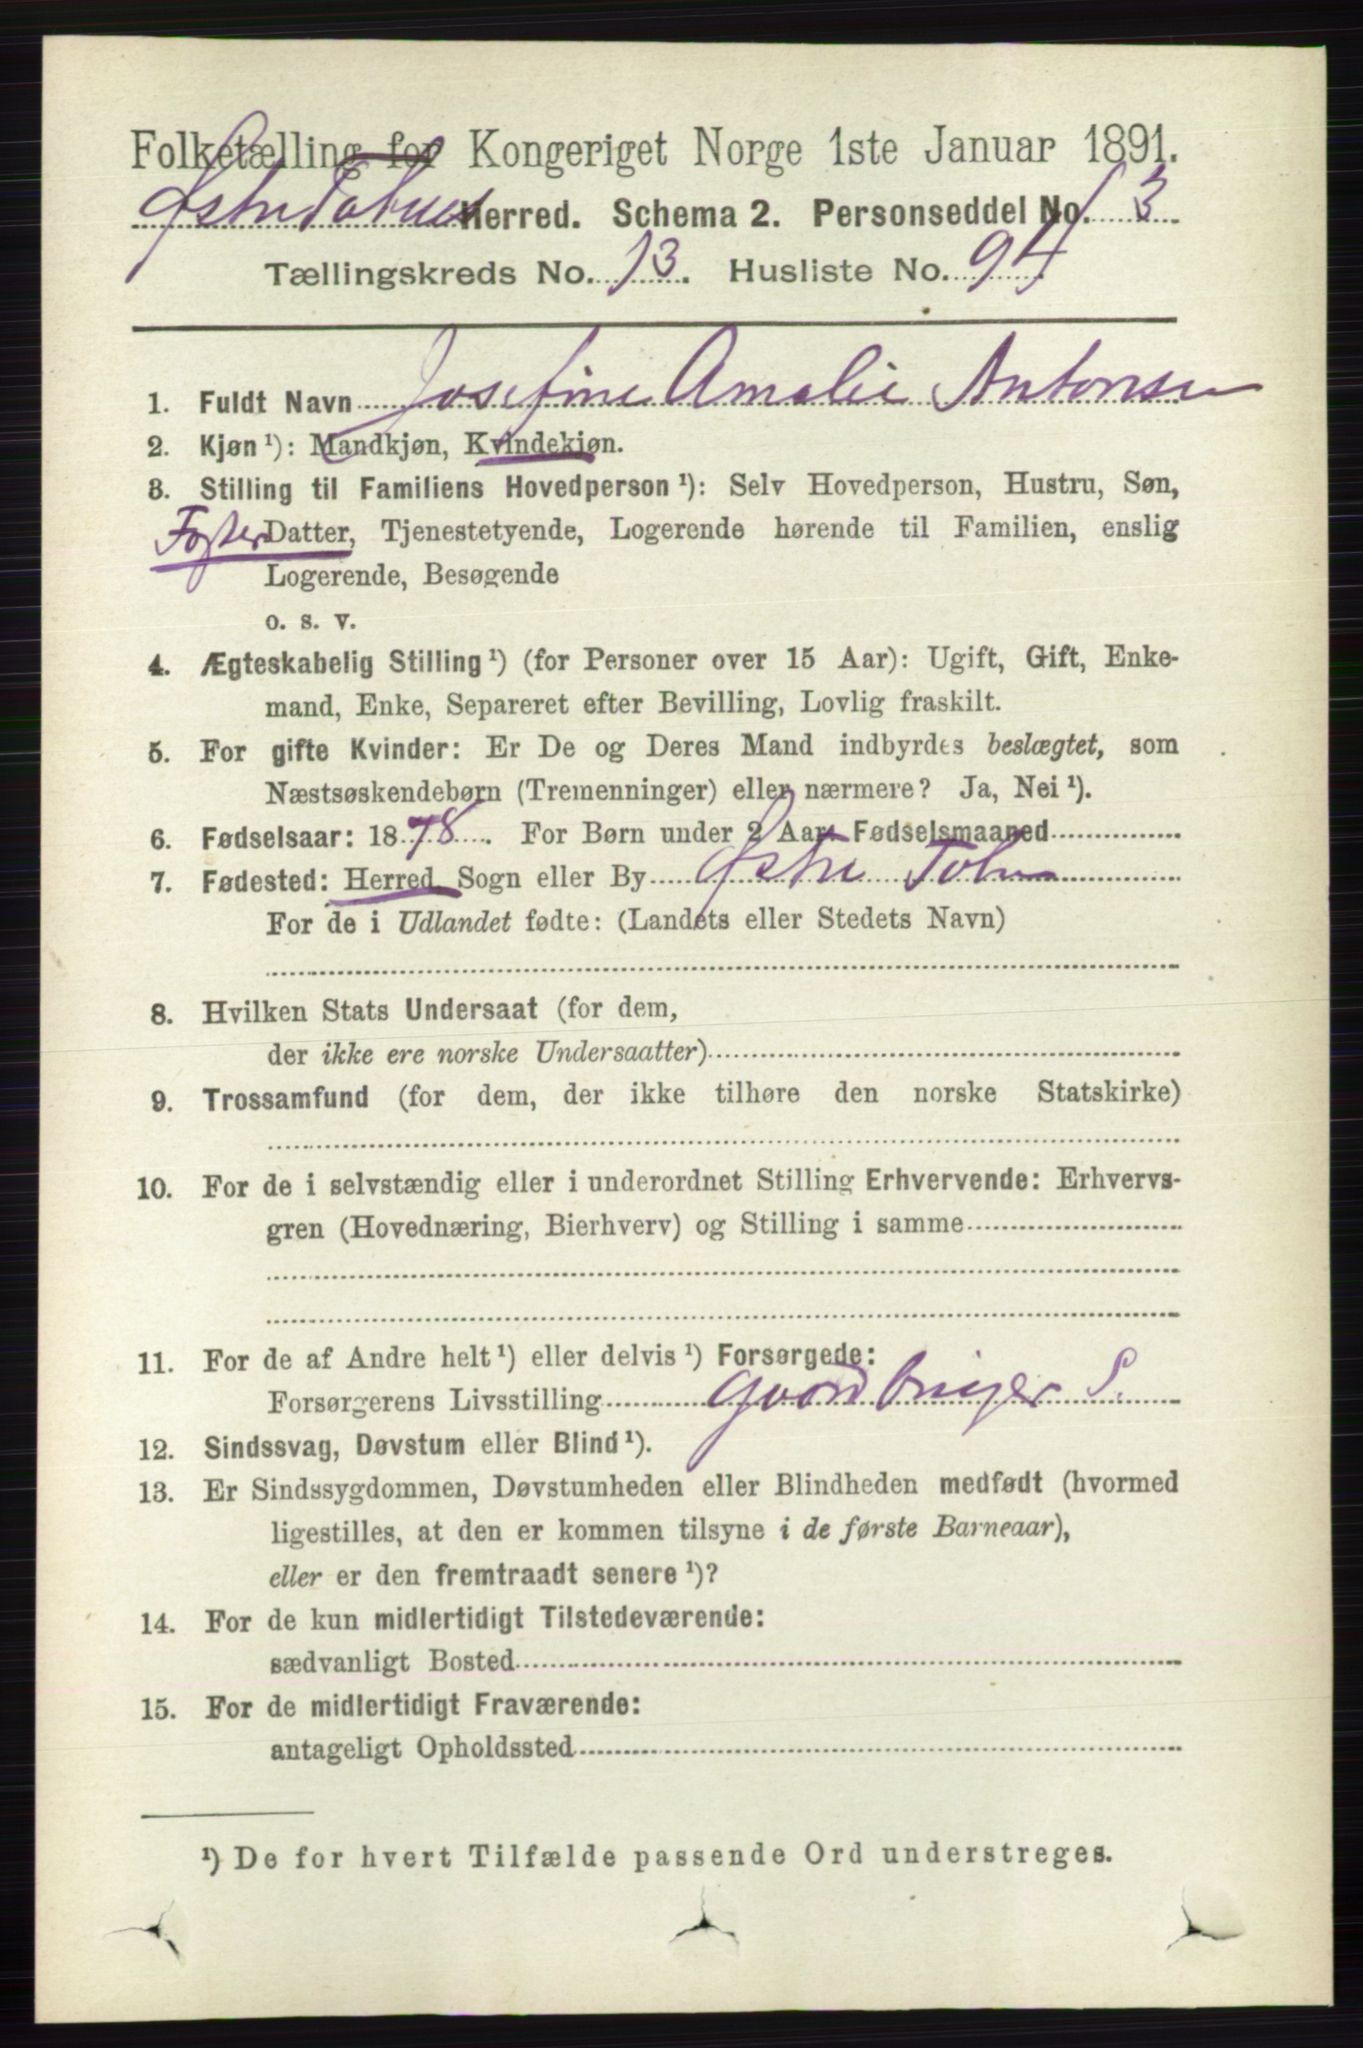 Folketælling for Kongeriget Norge 1ste Januar 1891.
Østre Toten Herred. Schema 2. Personseddel No. 3
Tællingskreds No. 13. Husliste No. 94
1. Fuldt Navn Josefine Amalie Antonsen
2. Kjøn ¹): Mandkjøn, Kvindekjøn.
3. Stilling til Familiens Hovedperson ¹): Selv Hovedperson, Hustru, Søn,
Foster Datter, Tjenestetyende, Logerende hørende til Familien, enslig
Logerende, Besøgende
o. s. v.
4. Ægteskabelig Stilling ¹) (for Personer over 15 Aar): Ugift, Gift, Enke-
mand, Enke, Separeret efter Bevilling, Lovlig fraskilt.
5. For gifte Kvinder: Er De og Deres Mand indbyrdes beslægtet, som
Næstsøskendebørn (Tremenninger) eller nærmere? Ja, Nei ¹).
6. Fødselsaar: 1878. For Børn under 2 Aar: Fødselsmaaned
7. Fødested: Herred, Sogn eller By Østre Toten
For de i Udlandet fødte: (Landets eller Stedets Navn)
8. Hvilken Stats Undersaat (for dem,
der ikke ere norske Undersaatter)
9. Trossamfund (for dem, der ikke tilhøre den norske Statskirke)
10. For de i selvstændig eller i underordnet Stilling Erhvervende: Erhvervs-
gren (Hovednæring, Bierhverv) og Stilling i samme
11. For de af Andre helt ¹) eller delvis ¹) Forsørgede:
Forsørgerens Livsstilling Gaardbruger S.
12. Sindssvag, Døvstum eller Blind ¹).
13. Er Sindssygdommen, Døvstumheden eller Blindheden medfødt (hvormed
ligestilles, at den er kommen tilsyne i de første Barneaar),
eller er den fremtraadt senere ¹)?
14. For de kun midlertidigt Tilstedeværende:
sædvanligt Bosted
15. For de midlertidigt Fraværende:
antageligt Opholdssted
¹) De for hvert Tilfælde passende Ord understreges.